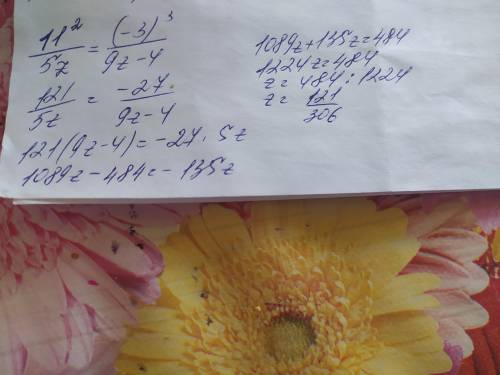 11² / 5z = (-3)³ / 9z-4
121 / 5z = -27 / 9z-4
121(9z-4)=-27·5z
1089z-484=-135z
1089z+135z=484
1224z=484
z=484:1224
z= 121 / 306